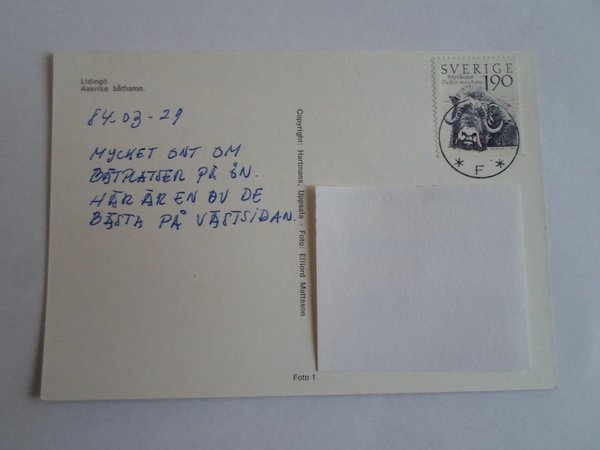 Lidingö.
Askrike båthamn.
SVERIGE
Myskoxe
Ovibos moschatus
1.90
F
84-03-29
MYCKET ONT OM
BÅTPLATSER PÅ ÖN.
HÄR ÄR EN AV DE
BÄSTA PÅ VÄSTSIDAN.
Copyright: Hartmans, Uppsala - Foto: Elliord Mattsson
Foto 1